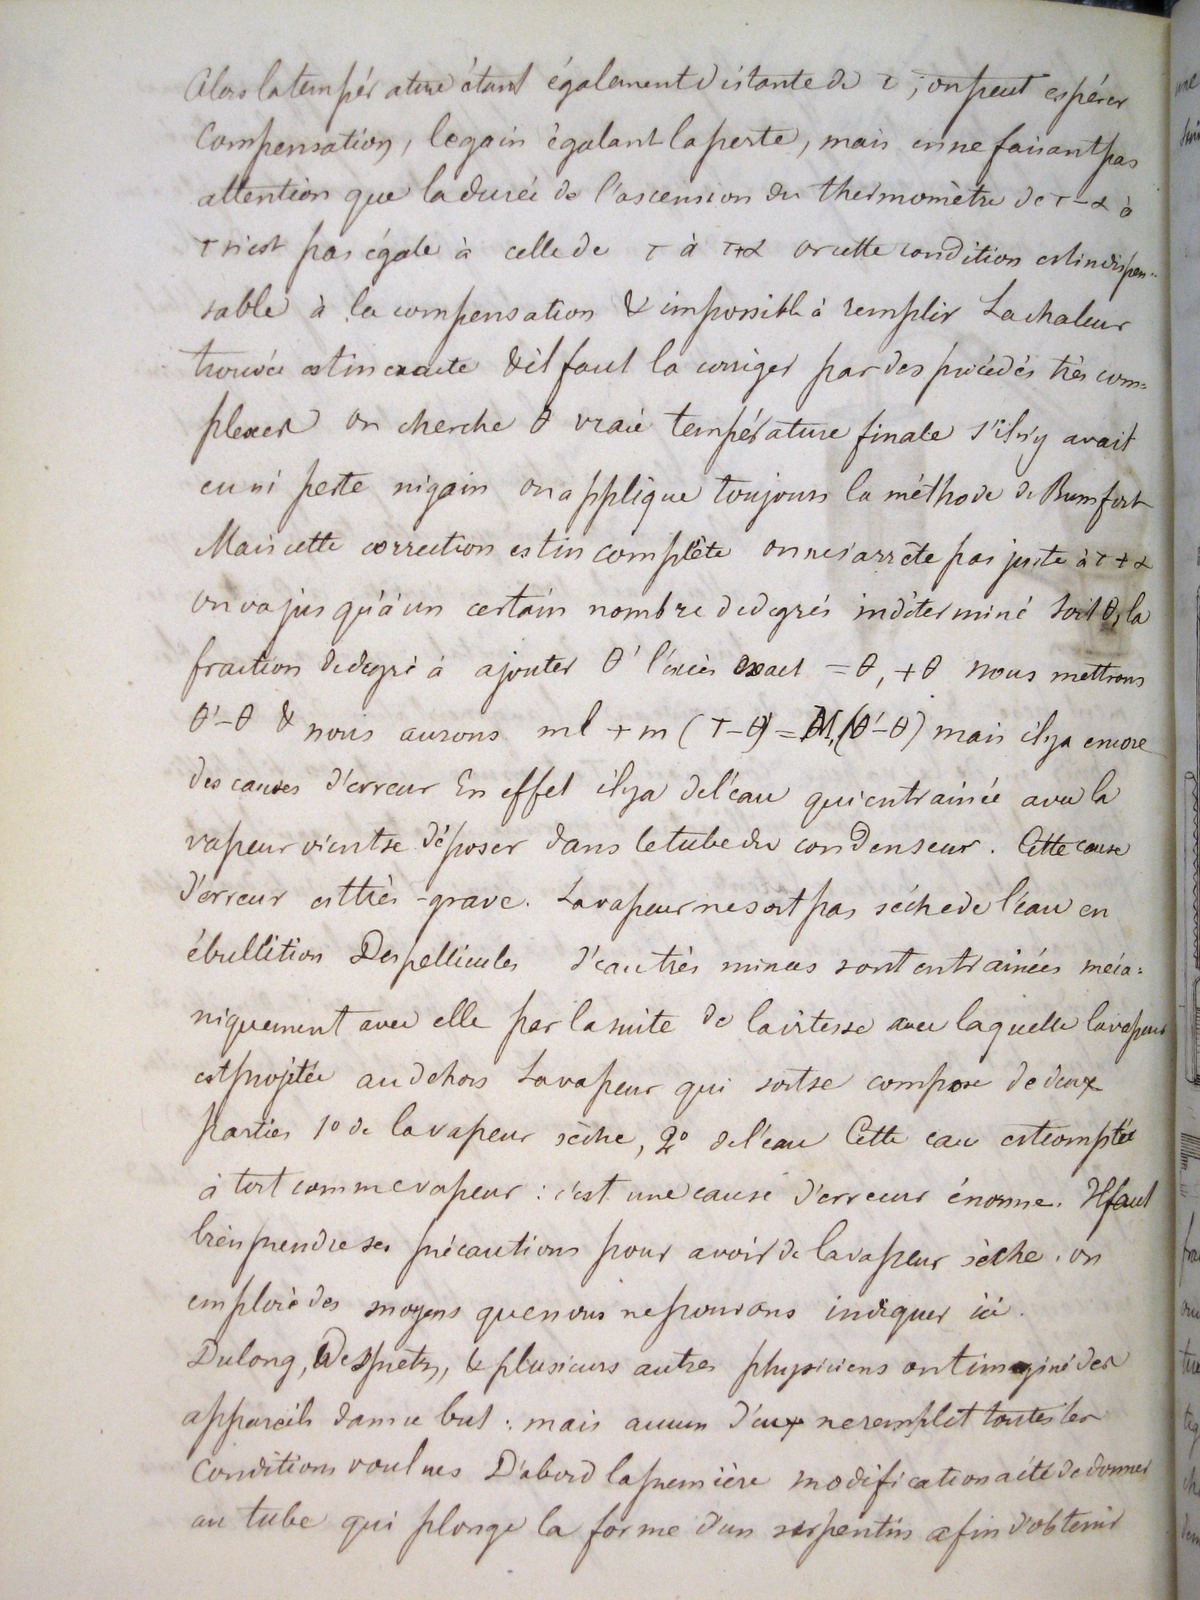 Alors la température étant également distante de τ, on peut espérer
compensation, le gain égalant la perte, mais en ne faisant pas
attention que la durée de l'ascension du thermomètre de τ-α à
τ n'est pas égale à celle de τ à τ+α or cette condition est indispen-
sable à la compensation & impossible à remplir La chaleur
trouvée est inexacte & il faut la corriger par des procédés très com=
plexes on cherche θ vraie température finale s'il n'y avait
eu ni perte ni gain on applique toujours la méthode de Rumfort
Mais cette correction est incomplète on ne s'arrête pas juste à τ+α
on va jusqu'à un certain nombre de degrés indéterminé soit θ, la
fraction de degré à ajouter θ' l'excès exact = θ, + θ nous mettrons
θ'-θ & nous aurons ml + m (T-θ') = M, (θ'-θ) mais il y a encore
des causes d'erreur En effet il y a de l'eau qui entrainée avec la
vapeur vient se déposer dans le tube du condenseur. Cette cause
d'erreur est très-grave. La vapeur ne sort pas sèche de l'eau en
ébullition Des pellicules d'eau très minces sont entrainées méca=
niquement avec elle par la suite de la vitesse avec laquelle la vapeur
est projetée au dehors La vapeur qui sort se compose de deux
parties 1° de la vapeur sèche, 2° de l'eau Cette eau est comptée
à tort comme vapeur : c'est une cause d'erreur énorme. Il faut
bien prendre ses précautions pour avoir de la vapeur sèche. on
emploie des moyens que nous ne pouvons indiquer ici.
Dulong, Despretz, & plusieurs autres physiciens ont imaginé des
appareils dans ce but : mais aucun d'eux ne remplit toutes les
conditions voulues D'abord la première modification a été de donner
au tube qui plonge la forme d'un serpentin afin d'obtenir